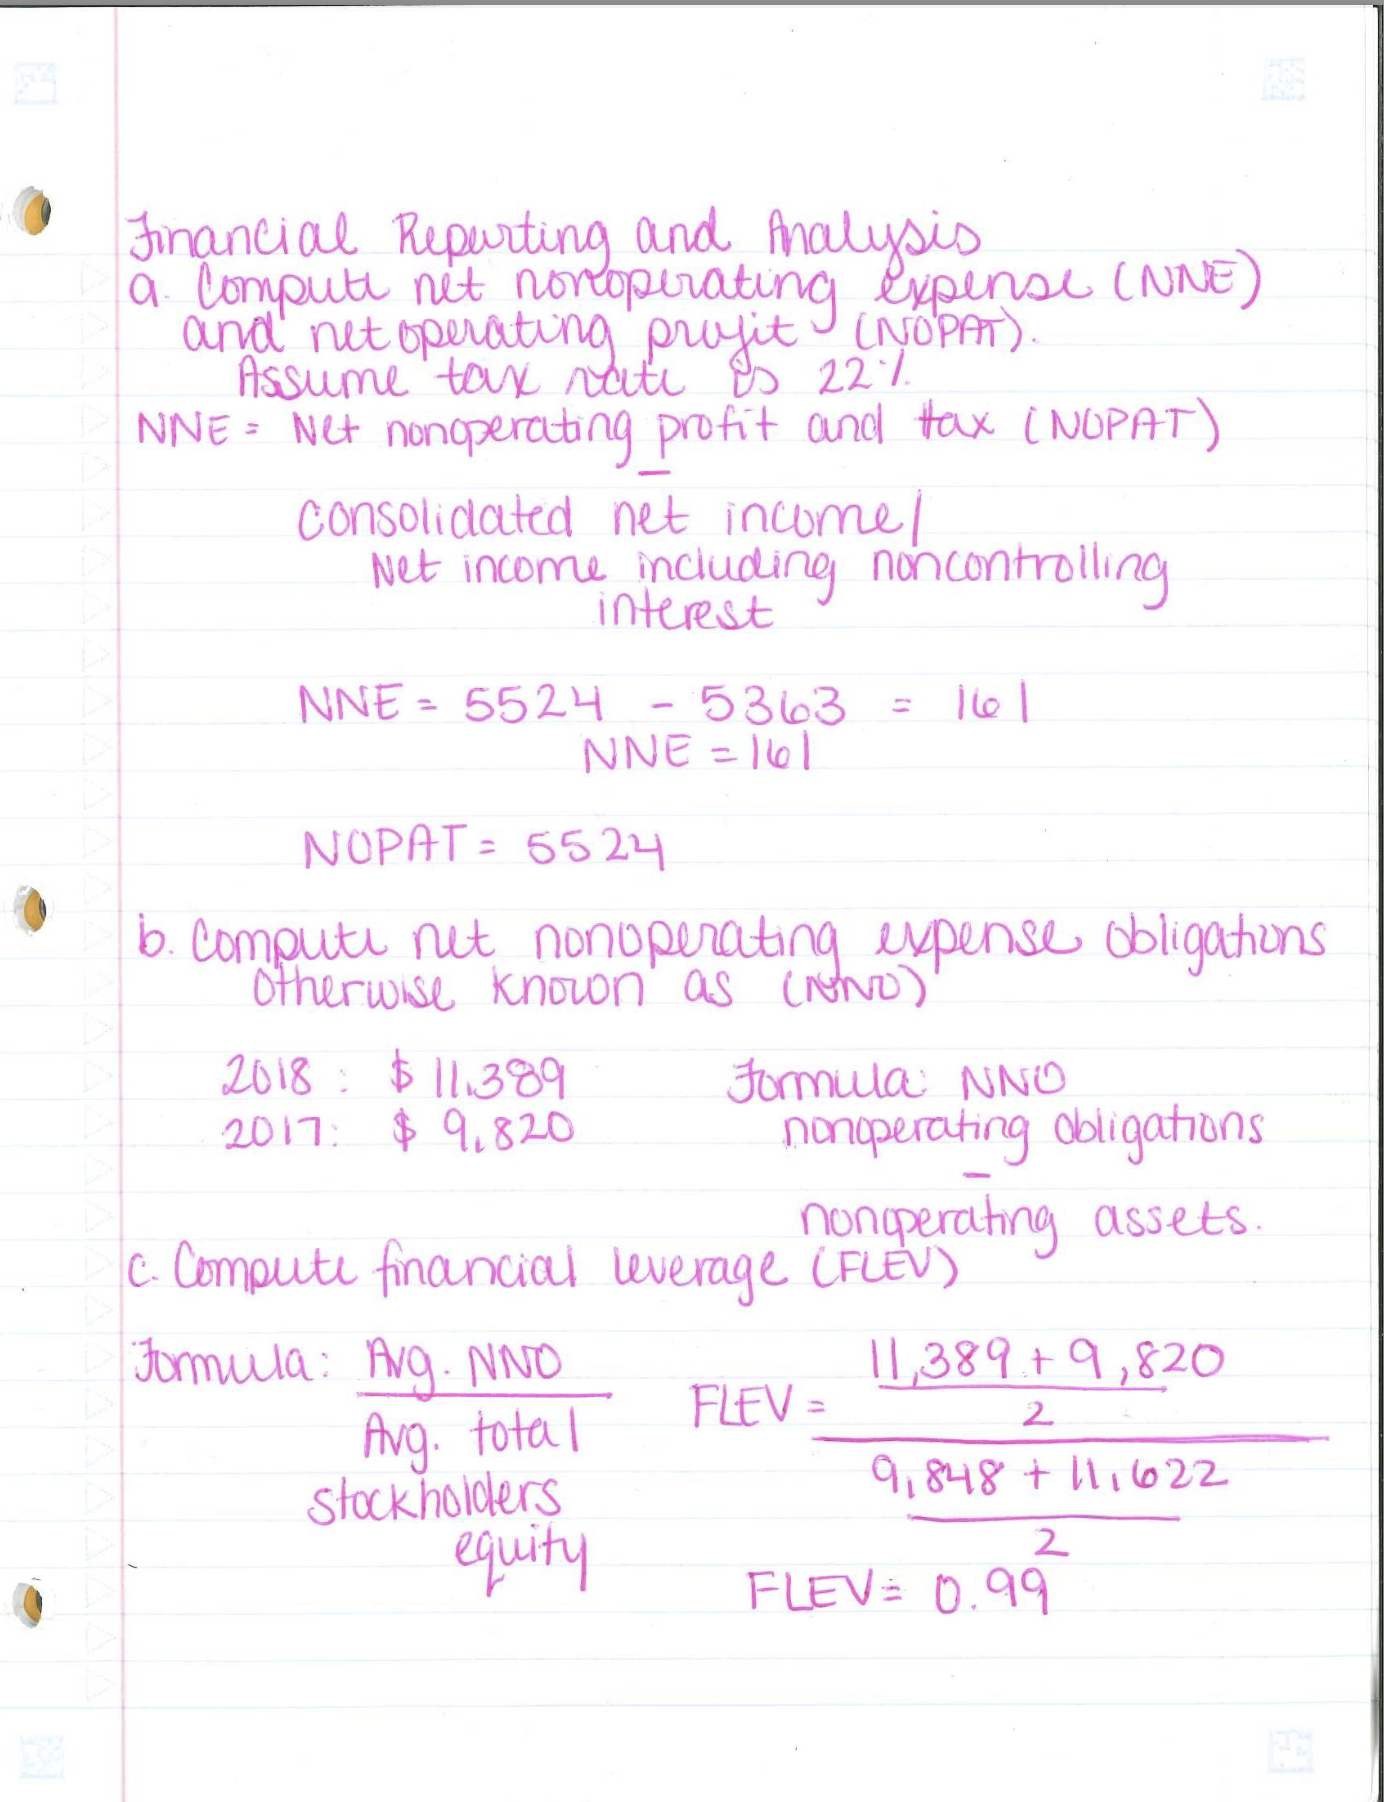 Financial Reporting and Analysis
a. Compute net nonoperating expense (NNE)
and net operating profit (NOPAT).
Assume tax rate is 22%.
NNE = Net nonoperating profit and tax (NOPAT)
−
consolidated net income/
Net income including noncontrolling
interest
NNE = 5524 - 5363 = 161
NNE = 161
NOPAT = 5524
b. Compute net nonoperating expense obligations
otherwise known as (NNO)
2018 : $ 11,389
2017: $ 9,820
Formula: NNO
nonoperating obligations
−
nonoperating assets.
c. Compute financial leverage (FLEV)
Formula: Avg. NNO
Avg. total
stockholders
equity
FLEV =
11,389 + 9,820
2
9,848 + 11,622
2
FLEV = 0.99